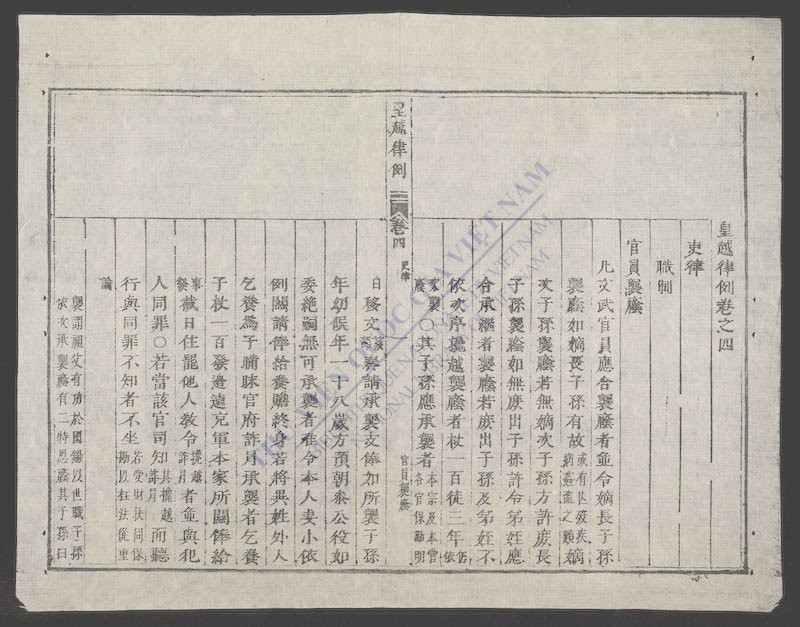 皇越律例卷之四
吏律
職制
官員襲廕
凡文武官員應合襲廕者並令嫡長子孫
襲廕如嫡長子孫有故或有亡歿疾病姦盜之類嫡
次子孫襲廕若無嫡次子孫方許庶長
子孫襲廕如無庶出子孫許令弟姪應
合承繼者襲廕若庶出子孫及弟姪不
依次序攙越襲廕者杖一百徒三年仍依
襲廕〇其子孫應承襲者本宗及本管各官保勘明
白移文該部奏請承襲支俸如所襲子孫
年幼候年一十八歲方預朝參公役如
委絕嗣無可承襲者准令本人妻小依
例關請俸給養贍終身若將異姓外人
乞養爲子瞞昧官府詐冒承襲者乞養
子杖一百發邊遠充軍本家所關俸給
事發截日住罷他人教令攙越詐冒者並與犯
人同罪〇若當該官司知其攙越詐冒而聽
行與同罪不知者不坐若受財扶同保勘以枉法從重
論
襲謂祖父有功於國錫以世職子孫
依次承襲廕有二特恩廕其子孫曰
皇越律例
卷四
吏律
官員襲廕
一
THƯ VIỆN QUỐC GIA VIỆT NAM
NATIONAL LIBRARY OF VIETNAM